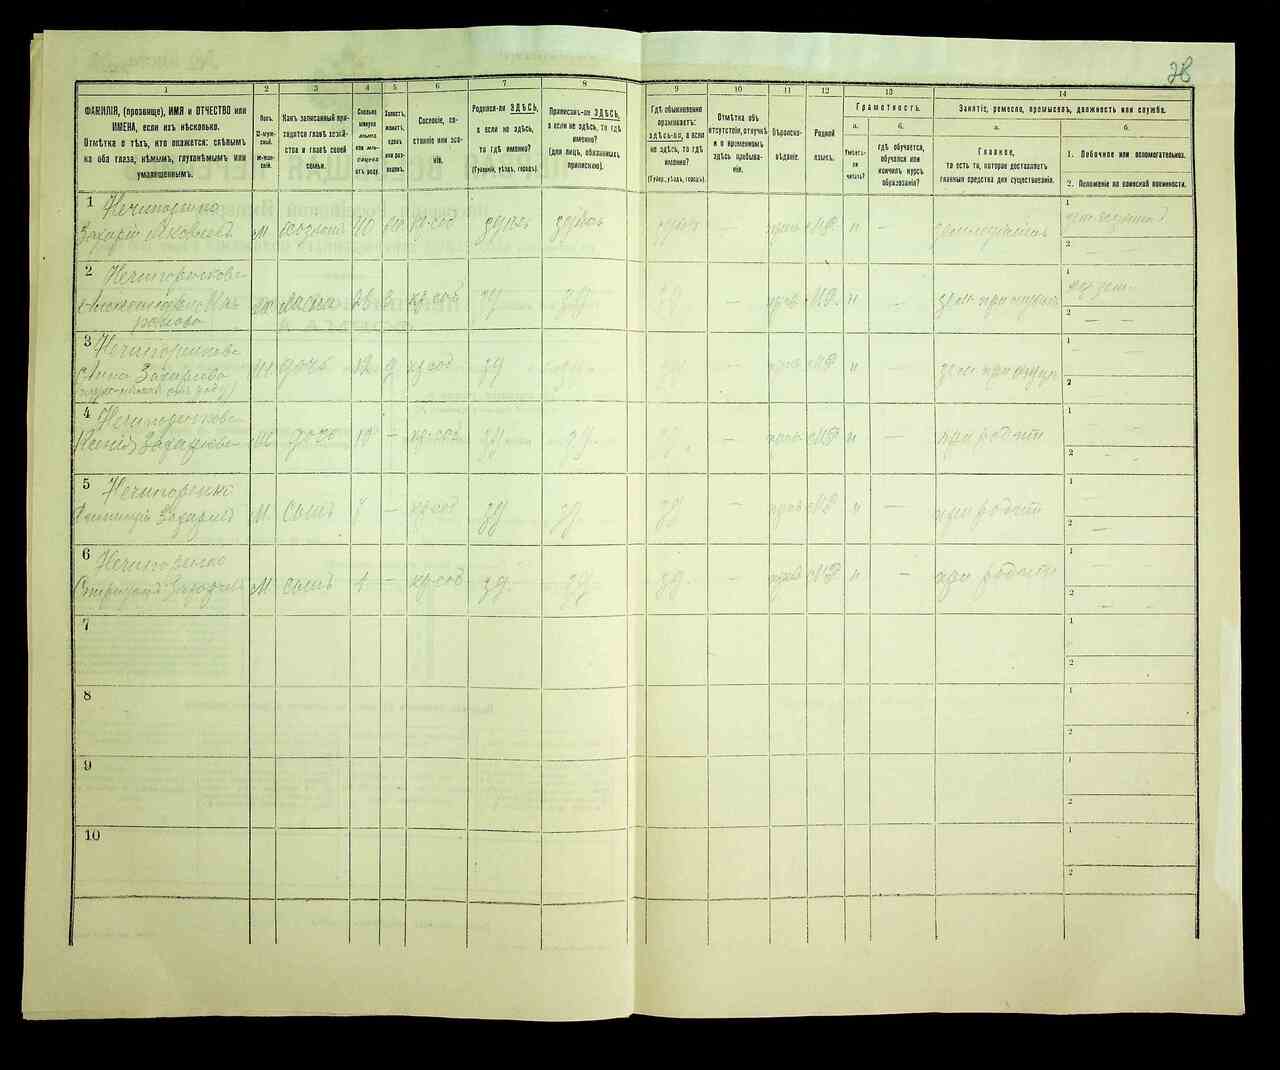 28
1
ФАМИЛІЯ, (прозвище), ИМЯ и ОТЧЕСТВО или
ИМЕНА, если ихъ нѣсколько.
Отмѣтка о тѣхъ, кто окажется: слѣпымъ
на оба глаза, нѣмымъ, глухонѣмымъ или
умалишеннымъ.
2
Полъ.
М-муж-
ской.
Ж-жен-
скій.
3
Какъ записанный при-
ходится главѣ хозяй-
ства и главѣ своей
семьи.
4
Сколько
минуло
лѣтъ
или мѣ-
сяцевъ
отъ роду.
5
Холостъ,
женатъ,
вдовъ
или раз-
веденъ.
6
Сословіе, со-
стояніе или зва-
ніе.
7
Родился-ли ЗДѢСЬ,
а если не здѣсь,
то гдѣ именно?
(Губернія, уѣздъ, городъ).
8
Приписанъ-ли ЗДѢСЬ,
а если не здѣсь, то гдѣ
именно?
(для лицъ, обязанныхъ
припиской).
9
Гдѣ обыкновенно
проживаетъ:
здѣсь-ли, а если
не здѣсь, то гдѣ
именно?
(Губер., уѣздъ, городъ).
10
Отмѣтка объ
отсутствіи, отлучкѣ
и о временномъ
здѣсь пребыва-
ніи.
11
Вѣроиспо-
вѣданіе.
12
Родной
языкъ.
13
Грамотность.
а.
Умѣетъ-
ли
читать?
б.
гдѣ обучается,
обучался или
кончилъ курсъ
образованія?
14
Занятіе, ремесло, промыселъ, должность или служба.
а.
Главное,
то есть то, которое доставляетъ
главныя средства для существованія.
б.
1. Побочное или вспомогательное.
2. Положеніе по воинской повинности.
1 Нечипоренко
Захарій Яковлевъ М. хозяинъ 40 кр-соб здѣсь здѣсь здѣсь — прав МР. н — земледѣлецъ
1
2 —
2 Нечипоренкова
жена 38 кр. соб зд зд. зд — прав МР. н — зем при мужѣ
1
2 — —
3 Нечипоренкова
Анна Захарова Ж дочь 12 кр соб зд зд. зд. — прав МР. н — зем при отцѣ
1 —
2 —
4 Нечипоренкова
Ксенія Захарова Ж дочь 10 — кр-соб зд зд. зд. — прав МР н — при родит
1 —
2 — —
5 Нечипоренко
Захаровъ М. сынъ — кр-соб зд зд. зд — прав МР. н — при родит
1 —
2 —
6 Нечипоренко
Спиридонъ Захаровъ М. сынъ 1 — кр-соб зд. зд. зд. — прав МР н — при родит
1 —
2 — —
7
1
2
8
1
2
9
1
2
10
1
2